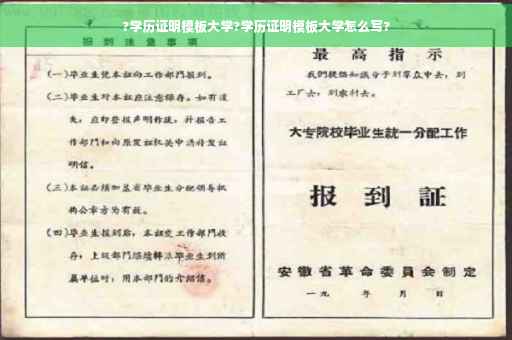 ?学历证明模板大学?学历证明模板大学怎么写?
报到注意事项
(一)毕业生凭本证向工作部门报到。
(二)毕业生对本证应注意保存。如有遗
失，应即登报声明作废，并报告工
作部门和向原发证机关申请补发证
明信。
(三)本证必须加盖省毕业生分配领导机
构公章方为有效。
(四)毕业生报到后，本证交工作部门收
存；上级部门继续转派毕业生到所
属单位时，用本部门的介绍信。
最高指示
我们提倡知识分子到群众中去，到
工厂去，到农村去。
大专院校毕业生統一分配工作
报到証
安徽省革命委員会制定
一九 年 月 日